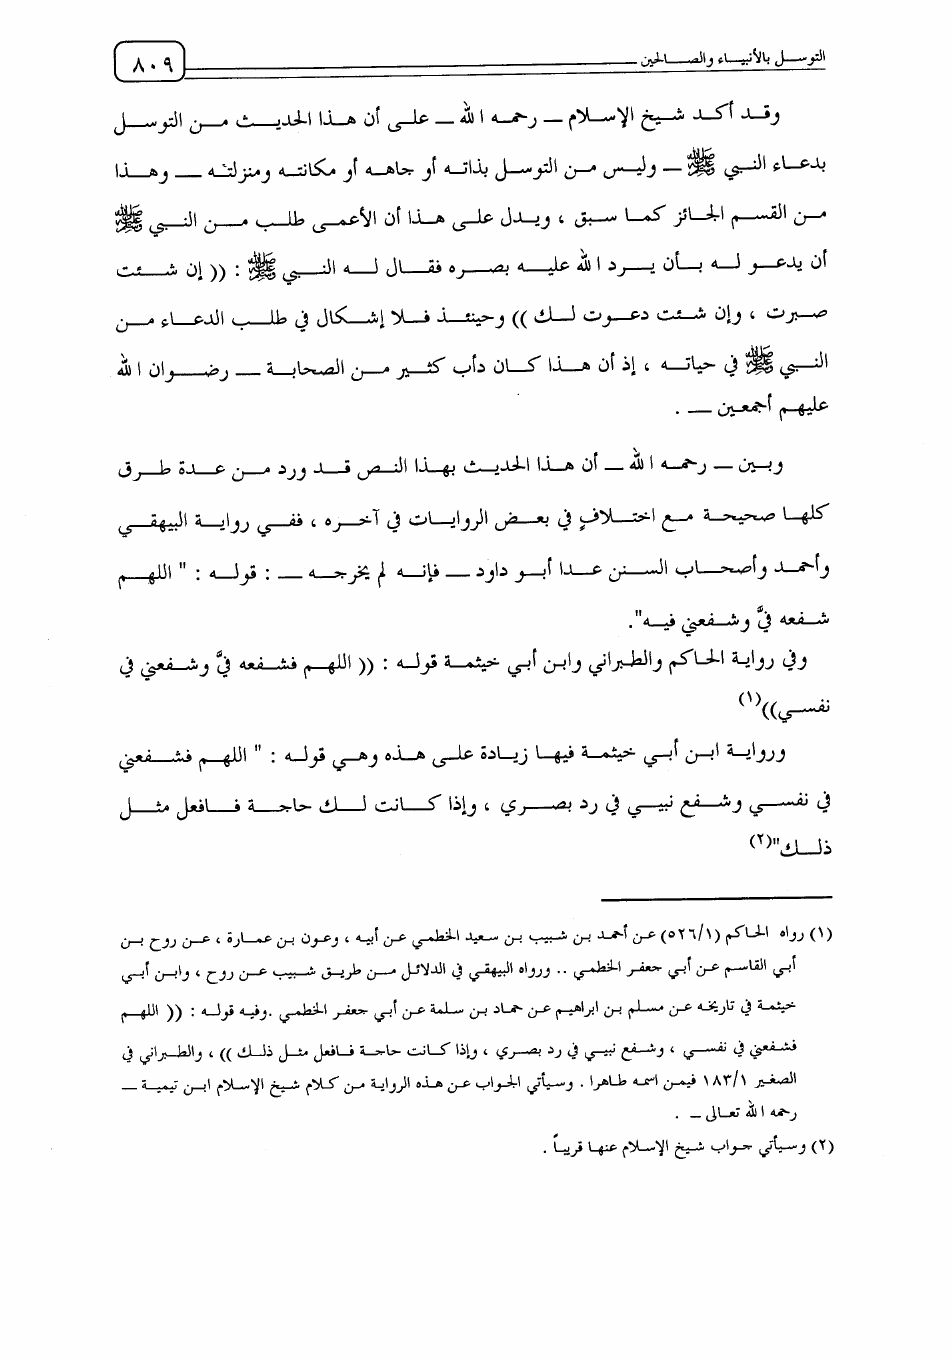 التوسل بالأنبياء والصالحين
٨٠٩
وقد أكد شيخ الإسلام – رحمه الله – على أن هذا الحديث من التوسل
بدعاء النبي ﷺ – وليس من التوسل بذاته أو جاهه أو مكانته ومنزلته – وهذا
من القسم الجائز كما سبق ، ويدل على هذا أن الأعمى طلب من النبي ﷺ
أن يدعو له بأن يرد الله عليه بصره فقال له النبي ﷺ : (( إن شئت
صبرت ، وإن شئت دعوت لك )) وحينئذ فلا إشكال في طلب الدعاء من
النبي ﷺ في حياته ، إذ أن هذا كان دأب كثير من الصحابة – رضوان الله
عليهم أجمعين – .
وبين – رحمه الله – أن هذا الحديث بهذا النص قد ورد من عدة طرق
كلها صحيحة مع اختلافٍ في بعض الروايات في آخره ، ففي رواية البيهقي
وأحمد وأصحاب السنن عدا أبو داود – فإنه لم يخرجه – : قوله : " اللهم
شفعه فيَّ وشفعني فيه".
وفي رواية الحاكم والطبراني وابن أبي خيثمة قوله : (( اللهم فشفعه فيَّ وشفعني في
نفسي))(١)
ورواية ابن أبي خيثمة فيها زيادة على هذه وهي قوله : " اللهم فشفعني
في نفسي وشفع نبيي في رد بصري ، وإذا كانت لك حاجة فافعل مثل
ذلك"(٢)
(١) رواه الحاكم (٥٢٦/١) عن أحمد بن شبيب بن سعيد الخطمي عن أبيه ، وعون بن عمارة ، عن روح بن
أبي القاسم عن أبي جعفر الخطمي .. ورواه البيهقي في الدلائل من طريق شبيب عن روح ، وابن أبي
خيثمة في تاريخه عن مسلم بن ابراهيم عن حماد بن سلمة عن أبي جعفر الخطمي .وفيه قوله : (( اللهم
فشفعني في نفسي ، وشفع نبيي في رد بصري ، وإذا كانت حاجة فافعل مثل ذلك )) ، والطبراني في
الصغير ١٨٣/١ فيمن اسمه طاهرا . وسيأتي الجواب عن هذه الرواية من كلام شيخ الإسلام ابن تيمية –
رحمه الله تعالى – .
(٢) وسيأتي جواب شيخ الإسلام عنها قريباً .